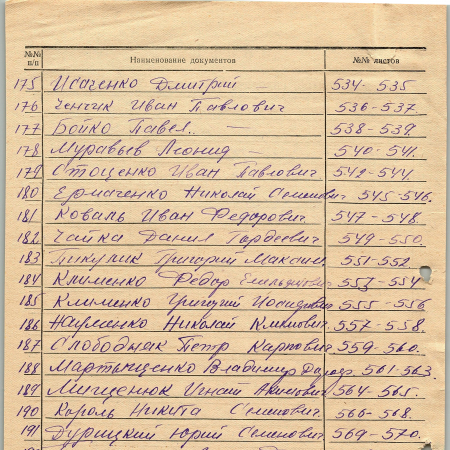 №№ п/п Наименование документов №№ листов
175 Исаченко Дмитрий — 534-535
176 Ченчик Иван Павлович 536-537.
177 Бойко Павел. — 538-539
178 Муравьев Леонид — 540-541.
179 Стоценко Иван Павлович 542-544.
180 Ермаченко Николай Семенович 545-546.
181 Коваль Иван Федорович. 547-548.
182 Чайка Данил Гордеевич 549-550.
183 Пикулик Григорий Максим. 551-552
184 Клименко Федор Емельянович 553-554
185 Клименко Григорий Иосифович 555-556
186 Науменко Николай Климович 557-558.
187 Слободжак Петр Карпович 559-560.
188 Мартыщенко Владимир 561-563.
189 Мищенюк Игнат Акимович 564-565.
190 Король Никита Семенович. 566-568.
191 Дурицкий Юрий Семенович 569-570.